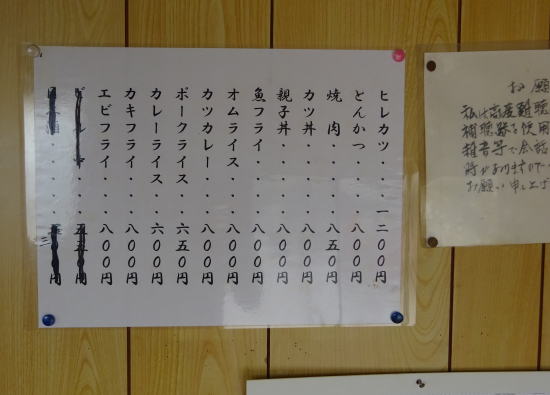 ヒレカツ・・・一二〇〇円
とんかつ・・・・八〇〇円
焼　肉・・・・八五〇円
カツ丼・・・・八〇〇円
親子丼・・・・八〇〇円
魚フライ・・・八〇〇円
オムライス・・・八〇〇円
カツカレー・・・八〇〇円
ポークライス・・六五〇円
カレーライス・・六〇〇円
カキフライ・・・八〇〇円
エビフライ・・・八〇〇円
五五〇円
お願
私は高度難聴
補聴器を使用
雑音等で会話
時がありますので
お願い申し上げ